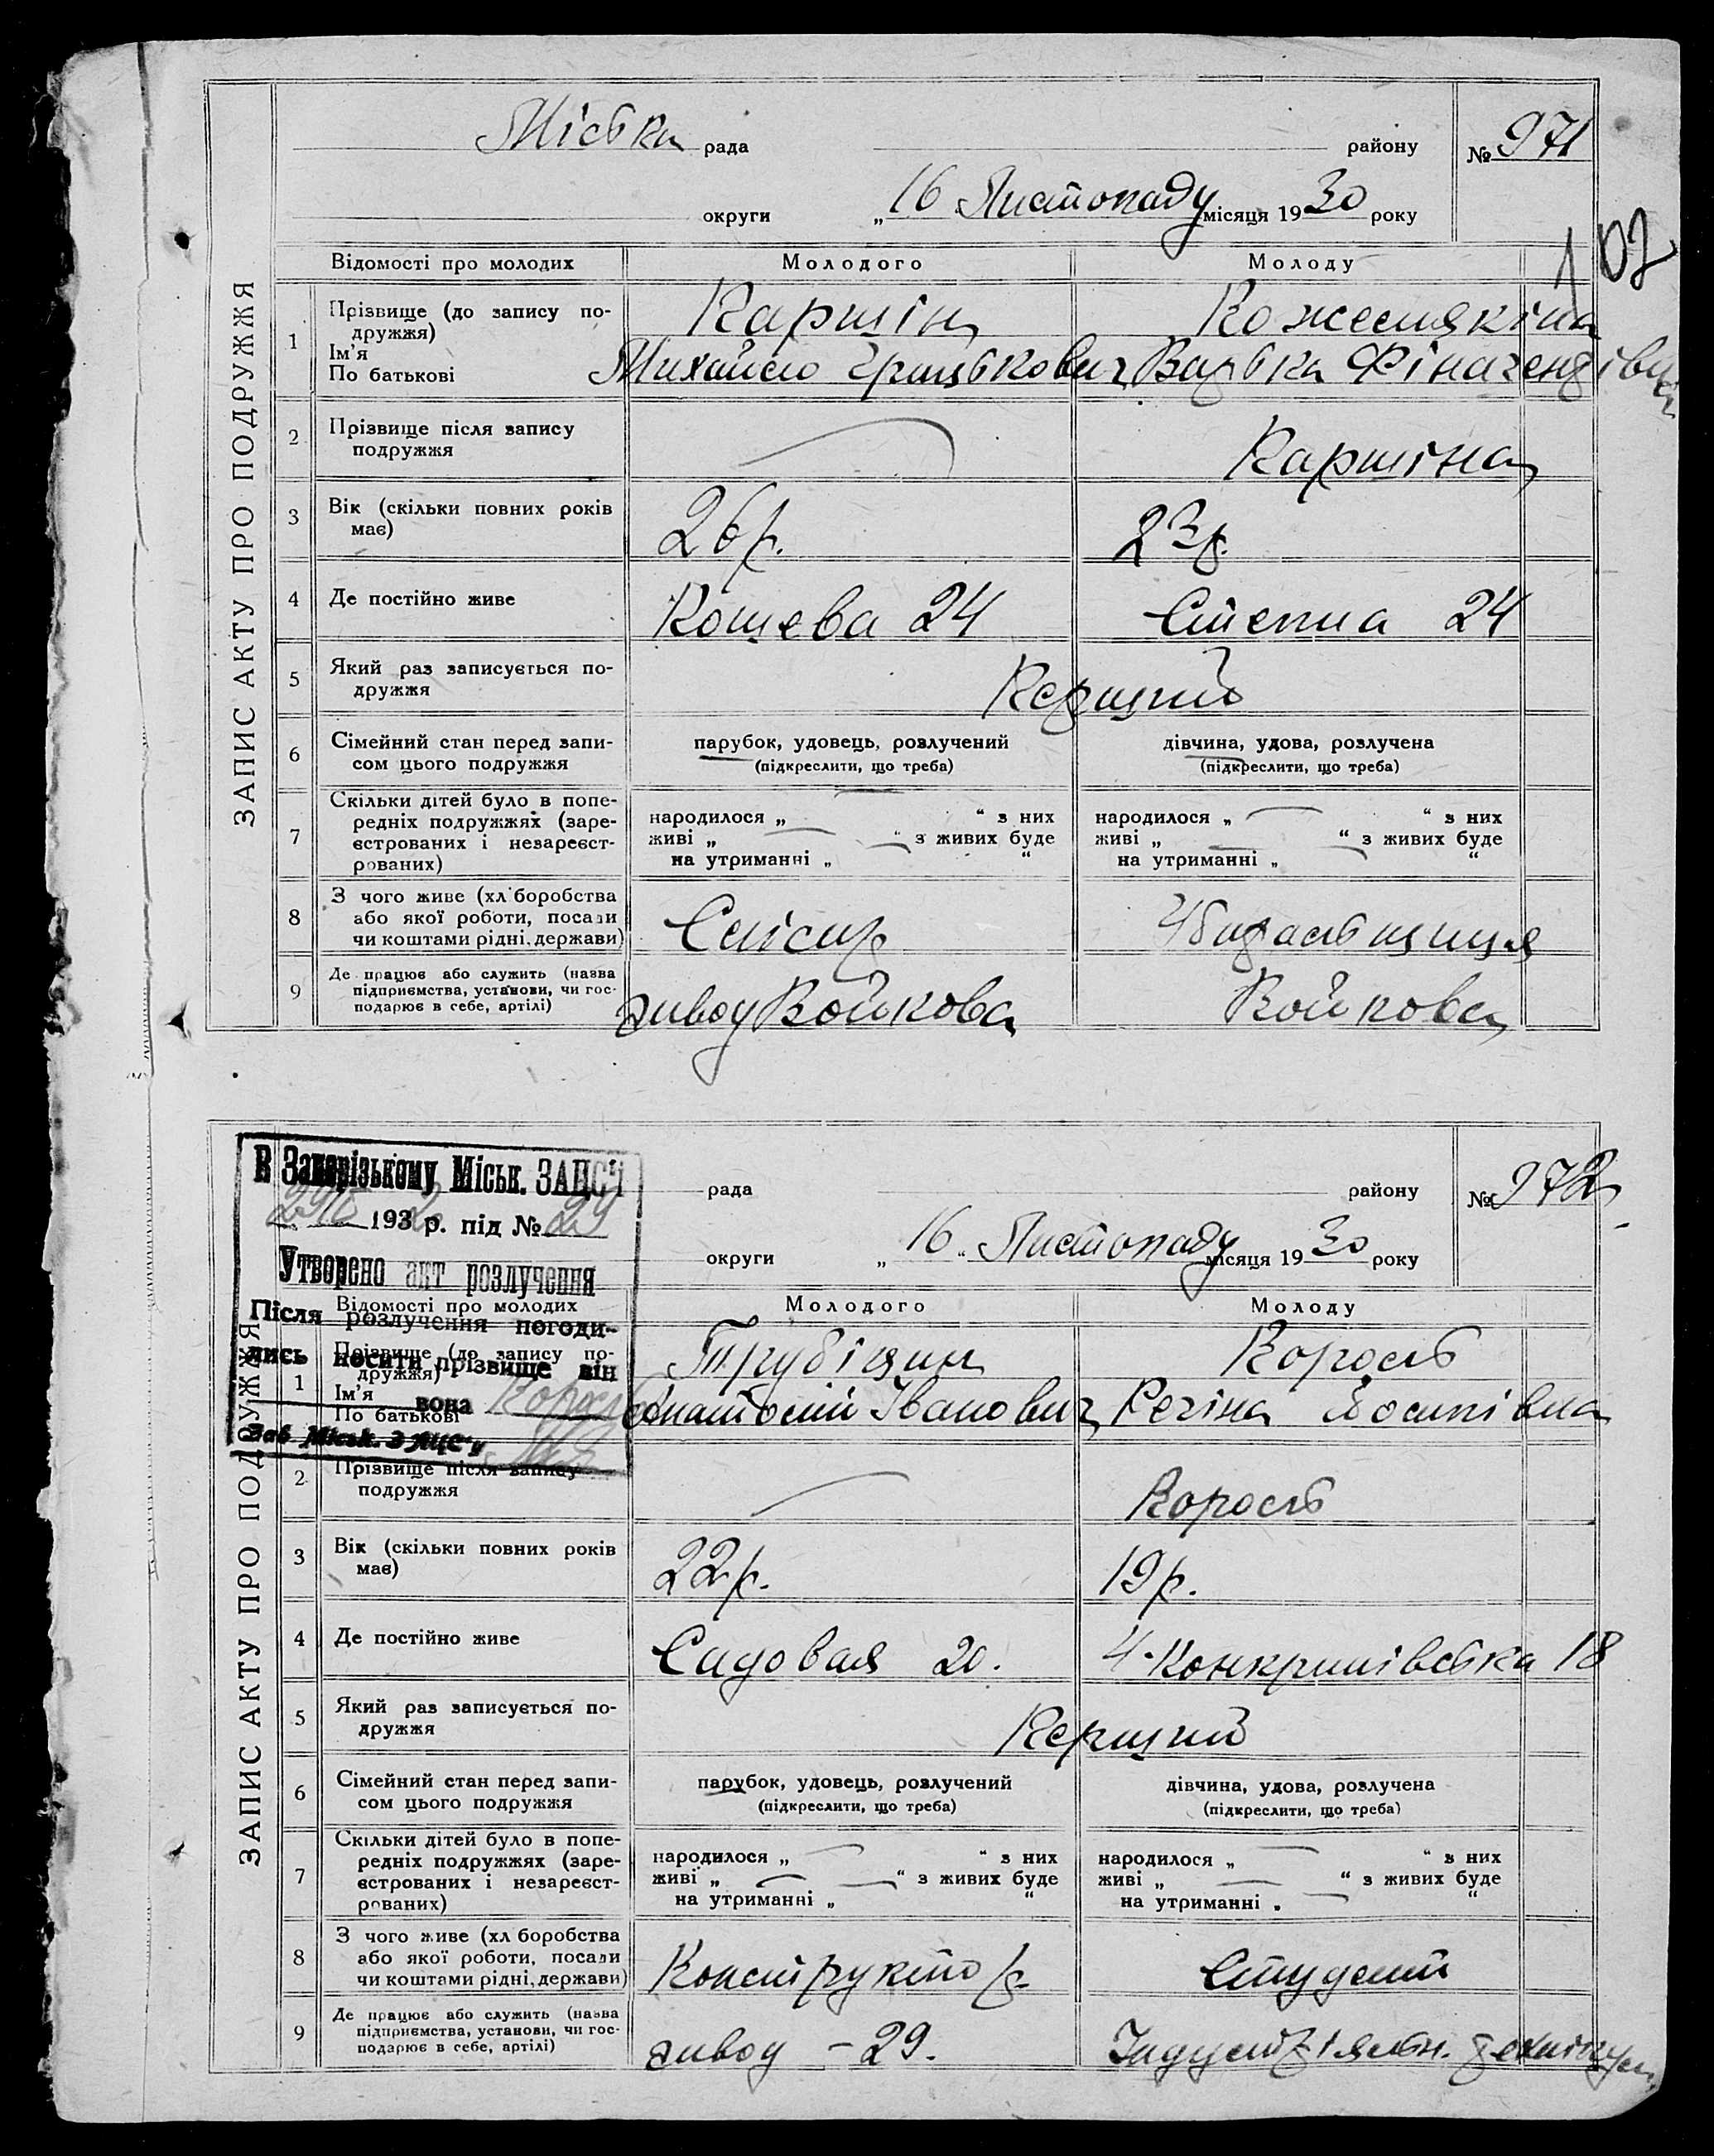 ЗАПИС АКТУ ПРО ПОДРУЖЖЯ
Міська рада району № 971
округи „16 Листопаду місяця 1930 року
102
Відомості про молодих Молодого Молоду
1 Прізвище (до запису подружжя) Каршін Кожемякіна
Ім'я
По батькові Михайло Грицькович Варька
2 Прізвище після запису подружжя Каршіна
3 Вік (скільки повних років має) 26 р. 23 р.
4 Де постійно живе Кощева 24 Степна 24
5 Який раз записується подружжя Перший
6 Сімейний стан перед записом цього подружжя парубок, удовець, розлучений дівчина, удова, розлучена
(підкреслити, що треба) (підкреслити, що треба)
7 Скільки дітей було в попередніх подружжях (зареєстрованих і незареєстрованих) народилося „ “ з них народилося „ “ з них
живі „ “ з живих буде живі „ “ з живих буде
на утриманні „ “ на утриманні „ “
8 З чого живе (хліборобства або якої роботи, посади чи коштами рідні, держави) Слісар
9 Де працює або служить (назва підприємства, установи, чи господарює в себе, артілі) завод Войкова Войкова
ЗАПИС АКТУ ПРО ПОДРУЖЖЯ
В Запорізькому Міськ. ЗАЦС'і
193 р. під № 29
Утворено акт розлучення
Після розлучення погодились носити прізвище він
вона Король
Зав. Міськ. ЗАЦС'у
рада району № 972
округи „16 „ Листопаду місяця 1930 року
Відомості про молодих Молодого Молоду
1 Прізвище (до запису подружжя) Трубіцин Король
Ім'я
По батькові Анатолій Іванович Регіна Йосипівна
2 Прізвище після запису подружжя Король
3 Вік (скільки повних років має) 22 р. 19 р.
4 Де постійно живе Садовая 20. 18
5 Який раз записується подружжя Перший
6 Сімейний стан перед записом цього подружжя парубок, удовець, розлучений дівчина, удова, розлучена
(підкреслити, що треба) (підкреслити, що треба)
7 Скільки дітей було в попередніх подружжях (зареєстрованих і незареєстрованих) народилося „ “ з них народилося „ “ з них
живі „ “ з живих буде живі „ “ з живих буде
на утриманні „ “ на утриманні „ “
8 З чого живе (хліборобства або якої роботи, посади чи коштами рідні, держави) Конструктор Студент
9 Де працює або служить (назва підприємства, установи, чи господарює в себе, артілі) завод – 29. Індустріяльн. технікум